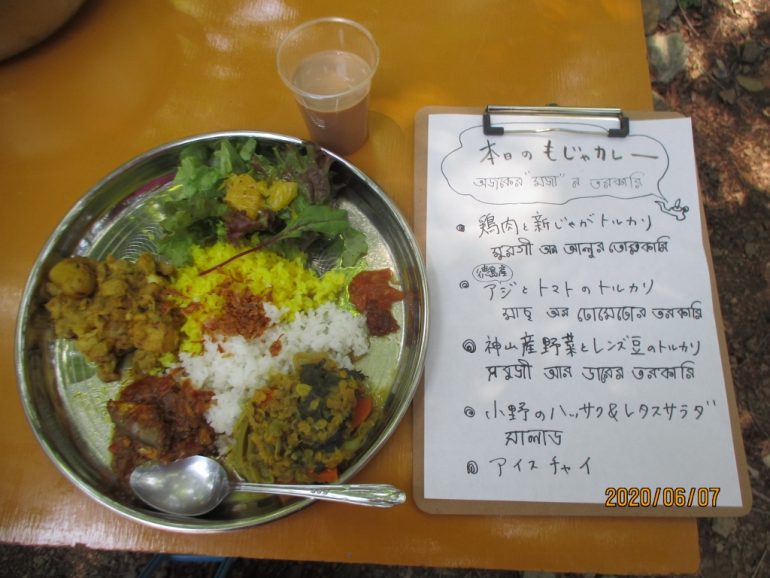 本日のもじゃカレー
আজকের "মজা" র তরকারি
鶏肉と新じゃがトルカリ
মুরগী অর আলুর তোরকারি
徳島産
アジとトマトのトルカリ
মাছ অর টোমেটোর তরকারি
神山産野菜とレンズ豆のトルカリ
সবুজী আর ডালের তরকারি
小野のハッサク&レタスサラダ
সালাড
アイスチャイ
2020/06/07